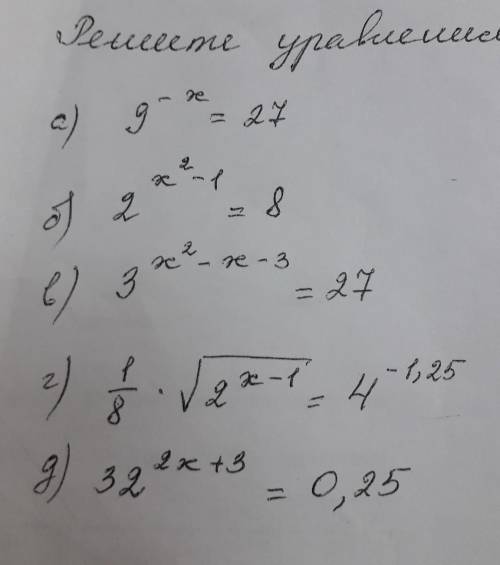 Решите уравнения
а) 9^{-x} = 27
б) 2^{x^2-1} = 8
в) 3^{x^2-x-3} = 27
г) \frac{1}{8} · \sqrt{2^{x-1}} = 4^{-1,25}
д) 32^{2x+3} = 0,25